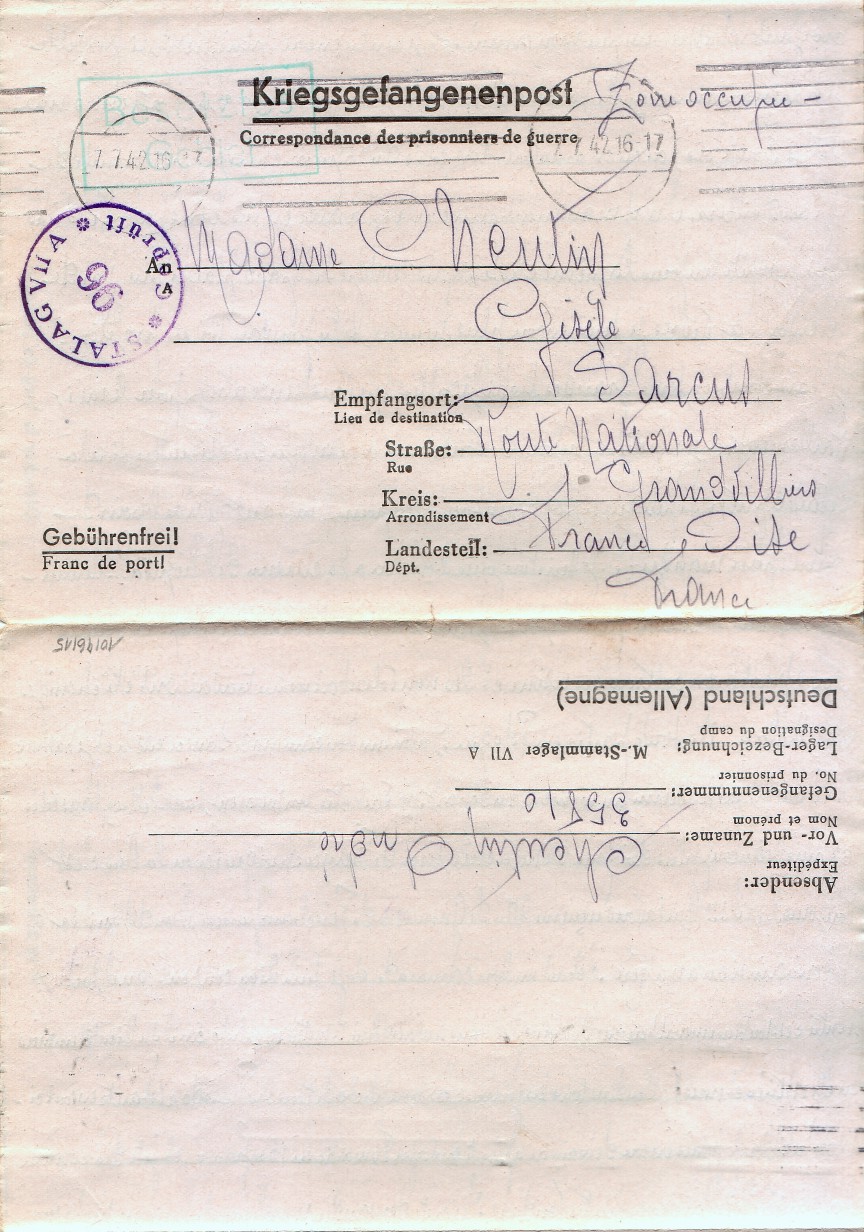 Kriegsgefangenenpost
Correspondance des prisonniers de guerre
Zone occupée
7.7.42.16-17
7.7.42.16-17
STALAG VII A
Geprüft
96
An Madame
A
Gisèle
Empfangsort: Sarcus
Lieu de destination
Straße: Route Nationale
Rue
Kreis: Grandvilliers
Arrondissement
Landesteil: France, Oise
Dépt.
France
Gebührenfrei!
Franc de port!
Deutschland (Allemagne)
Lager-Bezeichnung: M.-Stammlager VII A
Désignation du camp
Gefangenennummer: 35810
No. du prisonnier
Vor- und Zuname: André
Nom et prénom
Absender:
Expéditeur